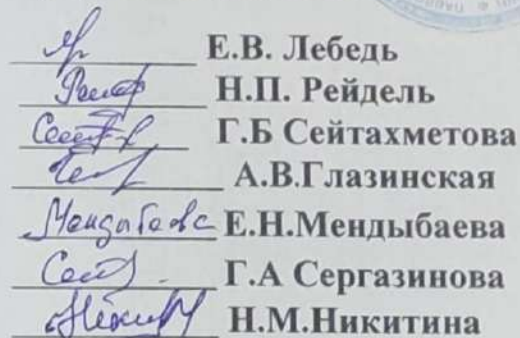 Е.В. Лебедь
Н.П. Рейдель
Г.Б Сейтахметова
А.В.Глазинская
Мендыбаева Е.Н.Мендыбаева
Г.А Сергазинова
Н.М.Никитина